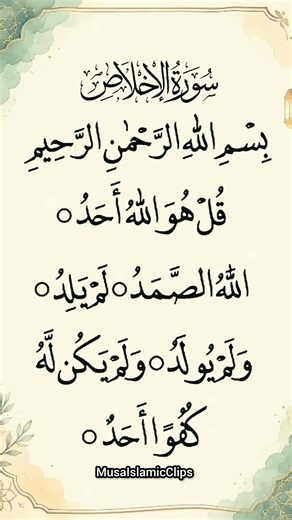 سُورَةُ الْإِخْلَاصِ
بِسْمِ اللهِ الرَّحْمٰنِ الرَّحِيمِ
قُلْ هُوَ اللهُ أَحَدُ ○
اللهُ الصَّمَدُ ○ لَمْ يَلِدُ ○
وَلَمْ يُولَدُ ○ وَلَمْ يَكُن لَّهُ
كُفُوًا أَحَدُ ○
MusaIslamicClips